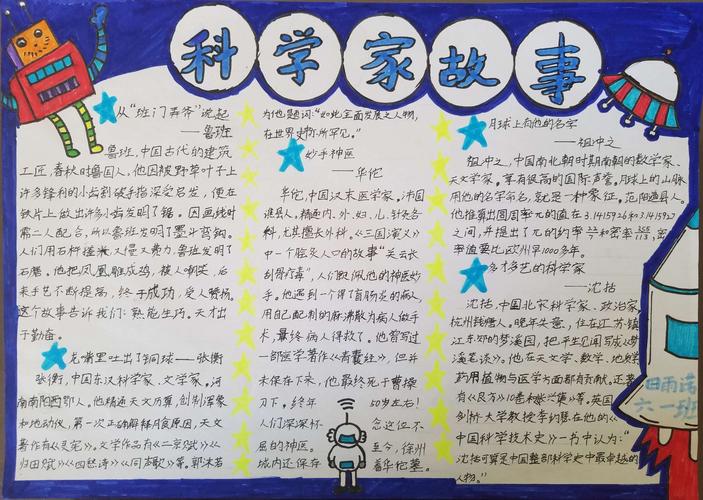 科学家故事
从“班门弄斧”说起
——鲁班
鲁班,中国古代的建筑
工匠,春秋时鲁国人,他因被野草叶子上
许多锋利的小齿割破手指深受启发,便在
铁片上做出许多小齿发明了锯。因画线时
需二人配合,所以鲁班发明了墨斗弯钩。
人们用石杵碰米又慢又费力鲁班发明了
石磨。他把凤凰雕成鸡,被人嘲笑,后
来手艺不断提高,终于成功,受人赞扬。
这个故事告诉我们:熟能生巧。天才出
于勤奋。
龙嘴里吐出了铜球——张衡
张衡,中国东汉科学家、文学家。河
南南阳西鄂人。他精通天文历算,创制浑象
和地动仪,第一次正确解释月食原因,天文
著作有《灵宪》。文学作品有《二京赋》《
归田赋》《四愁诗》《同声歌》等。郭沫若
为他题词:“如此全面发展之人物,
在世界史所罕见。”
妙手神医
——华佗
华佗,中国汉末医学家。沛国
谯县人。精通内、外、妇、儿、针灸各
科,尤其擅长外科。《三国演义》
中一个脍炙人口的故事“关云长
刮骨疗毒”,人们叙佩他的神医妙
手。他遇到一个得了盲肠炎的病人,
用自己配制的麻沸散为病人做手
术,最终病人得救了。他曾写过
一部医学著作《青囊经》,但并
未保存下来,他最终死于曹操
刀下,终年50岁左右!
人们深深怀念这位不
屈的神医。至今,徐州
城内还保存着华佗墓。
月球上有他的名字
——祖冲之
祖冲之,中国南北朝时期南朝的数学家、
天文学家。享有很高的国际声誉。月球上的山脉
用他的名字命名,就是一种象征。范阳遒县人。
他推算出圆周率π的值在3.1415926和3.1415927
之间,并提出了π的约率22/7和密率355/113,密
率值要比欧州早1000多年。
多才多艺的科学家
——沈括
沈括,中国北宋科学家、政治家,
杭州钱塘人。晚年失意,住在江苏镇
江东郊的梦溪园,把平生见闻写成《梦
溪笔谈》。他在天文学、数学、地
药用植物与医学方面都有贡献。还著
有《良方》10卷和等。英国
剑桥大学教授李约瑟在他的《
中国科学技术史》一书中认为:“
沈括可算是中国整部科学史中最卓越的
人物。”
田雨诺
六一班